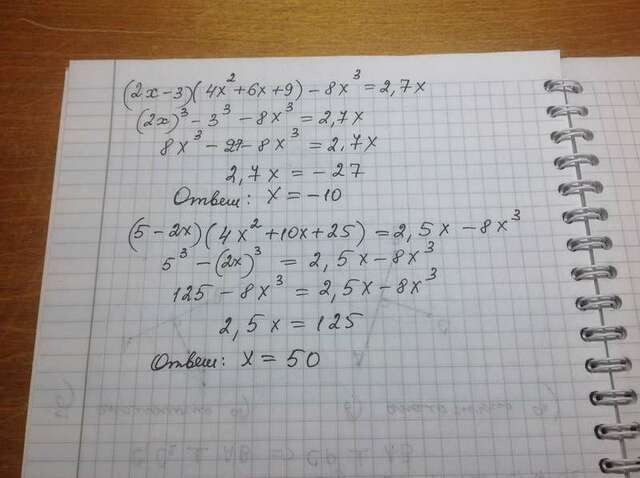 (2x-3)(4x²+6x+9)-8x³=2,7x
(2x)³-3³-8x³=2,7x
8x³-27-8x³=2,7x
2,7x=-27
Ответ: x=-10
(5-2x)(4x²+10x+25)=2,5x-8x³
5³-(2x)³=2,5x-8x³
125-8x³=2,5x-8x³
2,5x=125
Ответ: x=50